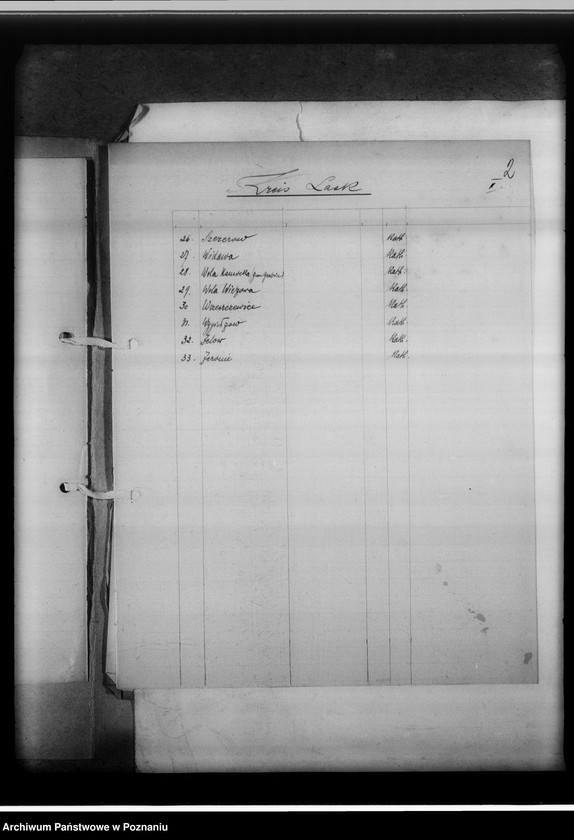 2
I
Kreis Lask
26. Szczercow Kath.
27. Widawa Kath.
28. Wola Kamocka Kath.
29. Wola Wiązowa Kath.
30 Kath.
31. Kath.
32. Zelow Kath.
33. Kath.
Archiwum Państwowe w Poznaniu